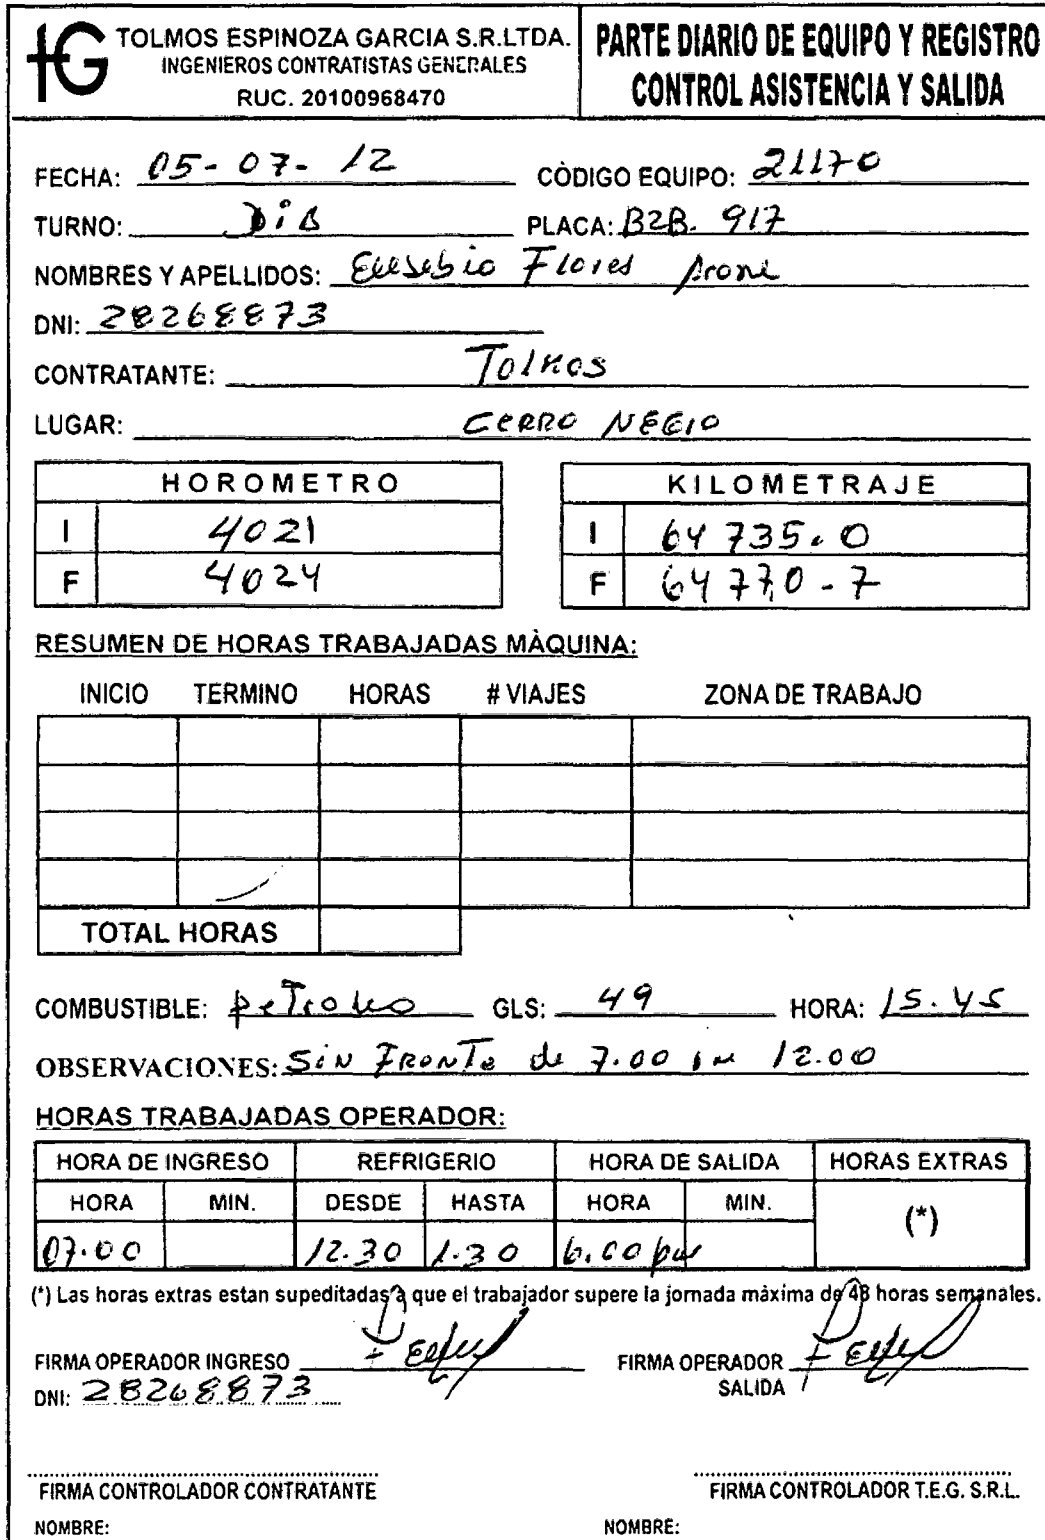 tG TOLMOS ESPINOZA GARCIA S.R.LTDA.
INGENIEROS CONTRATISTAS GENERALES
RUC. 20100968470
PARTE DIARIO DE EQUIPO Y REGISTRO
CONTROL ASISTENCIA Y SALIDA
FECHA: 05-07-12 CÒDIGO EQUIPO: 21170
TURNO: DiA PLACA: B2B. 917
NOMBRES Y APELLIDOS: Eusebio Flores Arone
DNI: 28268873
CONTRATANTE: Tolmos
LUGAR: CERRO NEGro
HOROMETRO
I 4021
F 4024
KILOMETRAJE
I 64 735.0
F 64 770-7
RESUMEN DE HORAS TRABAJADAS MÀQUINA:
INICIO TERMINO HORAS # VIAJES ZONA DE TRABAJO
TOTAL HORAS
COMBUSTIBLE: peTroleo GLS: 49 HORA: 15.45
OBSERVACIONES: SiN FRONTe de 7.00 12.00
HORAS TRABAJADAS OPERADOR:
HORA DE INGRESO REFRIGERIO HORA DE SALIDA HORAS EXTRAS
HORA MIN. DESDE HASTA HORA MIN. (*)
07.00 12.30 1.30 6.00 pm
(*) Las horas extras estan supeditadas a que el trabajador supere la jornada màxima de 48 horas semanales.
FIRMA OPERADOR INGRESO
DNI: 28268873
FIRMA OPERADOR
SALIDA
FIRMA CONTROLADOR CONTRATANTE
NOMBRE:
FIRMA CONTROLADOR T.E.G. S.R.L.
NOMBRE: